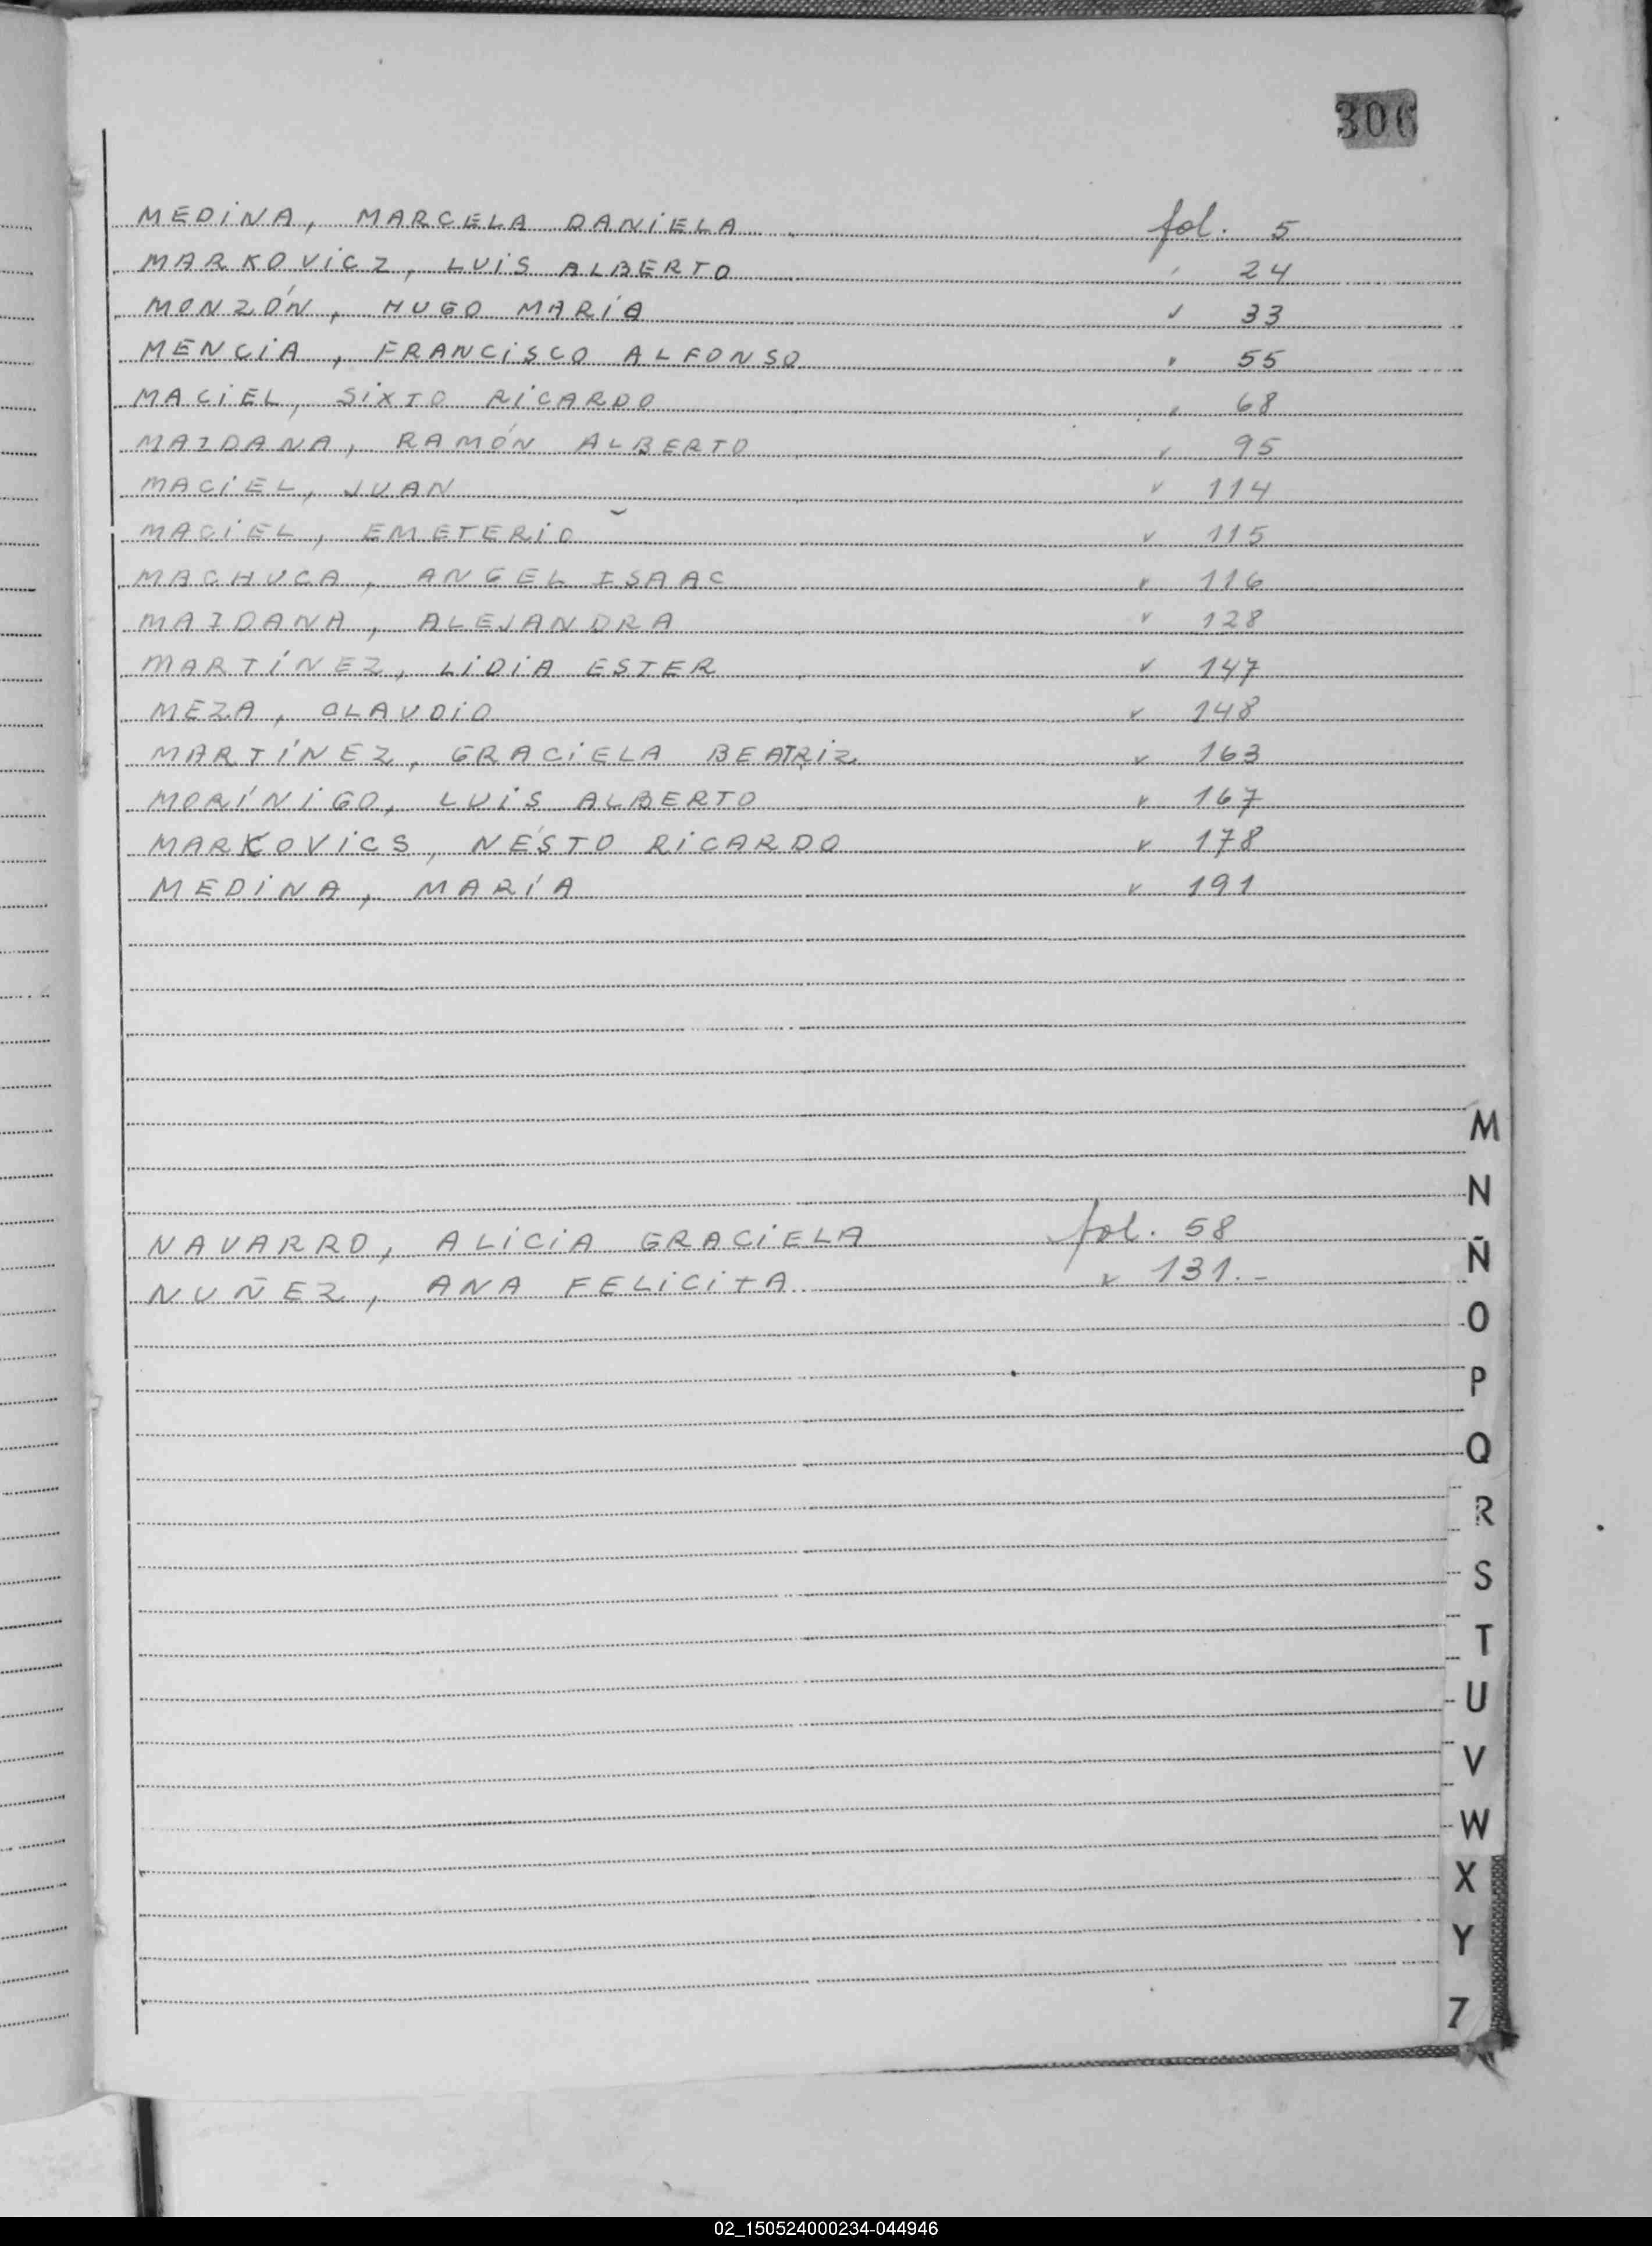 306
MEDINA, MARCELA DANIELA fol. 5
MARKOVICZ, LUIS ALBERTO " 24
MONZÓN, HUGO MARÍA " 33
MENCIA, FRANCISCO ALFONSO " 55
MACIEL, SIXTO RICARDO " 68
MAIDANA, RAMÓN ALBERTO " 95
MACIEL, JUAN " 114
MACIEL, EMETERIO " 115
MACHUCA, ANGEL ISAAC " 116
MAIDANA, ALEJANDRA " 128
MARTÍNEZ, LIDIA ESTER " 147
MEZA, CLAUDIO " 148
MARTÍNEZ, GRACIELA BEATRIZ " 163
MORÍNIGO, LUIS ALBERTO " 167
MARKOVICS, NÉSTO RICARDO " 178
MEDINA, MARÍA " 191
M
N
NAVARRO, ALICIA GRACIELA fol. 58
Ñ
NUÑEZ, ANA FELICITA " 131.-
O
P
Q
R
S
T
U
V
W
X
Y
Z
02_150524000234-044946